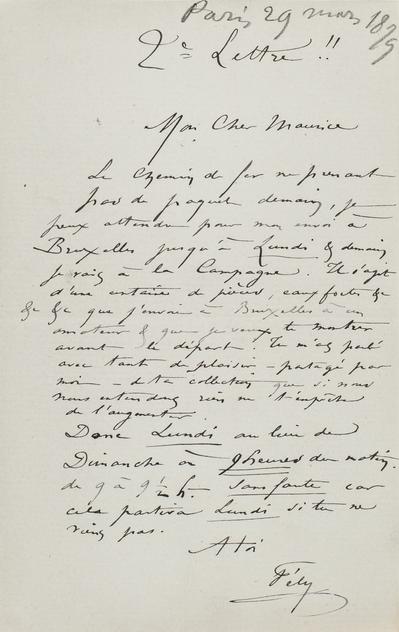 Paris 29 mars 1879
2e Lettre !!
Mon Cher Maurice
Le Chemin de fer ne prenant
pas de paquet demain, je
peux attendre pour mon envoi à
Bruxelles jusqu'à Lundi & demain
je vais à la Campagne. Il s'agit
d'une centaine de pièces, eaux fortes &c
&c &c que j'envoie à Bruxelles à un
amateur & que je veux te montrer
avant le départ. Tu m'as parlé
avec tant de plaisir – partagé par
moi – de ta collection que si nous
nous entendons rien ne t'empêche
de l'augmenter.
Donc Lundi au lieu de
Dimanche à 9 heures du matin.
de 9 à 9 ½ h. sans faute car
cela partira Lundi si tu ne
viens pas.
A toi
Fély